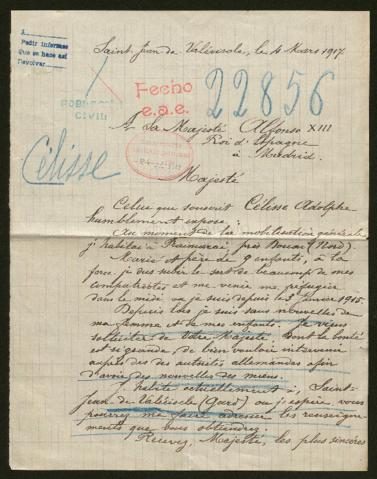 Pedir informes
Que se hace así
Devolver
Saint-Jean de Valériscle, le 4 Mars 1917
Fecho
e.a.e.
22856
GOBIERNO
CIVIL
A Sa Majesté Alfonso XIII
Roi d'Espagne
à Madrid.
Célisse
Majesté
Celui qui souscrit Célisse Adolphe
humblement expose:
Au moment de la mobilisation générale
j'habitais à près Bouchain (Nord).
Marié et père de 9 enfants, à la
force j'ai dû subir le sort de beaucoup de mes
compatriotes et me venir me réfugier
dans le midi où je suis depuis le 3 janvier 1915.
Depuis lors je suis sans nouvelles de
ma femme et de mes enfants. Je viens
solliciter de Votre Majesté dont la bonté
est si grande, de bien vouloir intervenir
auprès des autorités allemandes afin
d'avoir des nouvelles des miens.
J'habite actuellement à Saint-
Jean de Valériscle (Gard) où j'espère vous
pourrez me faire adresser les renseigne-
ments que vous obtiendrez.
Recevez, Majesté, les plus sincères